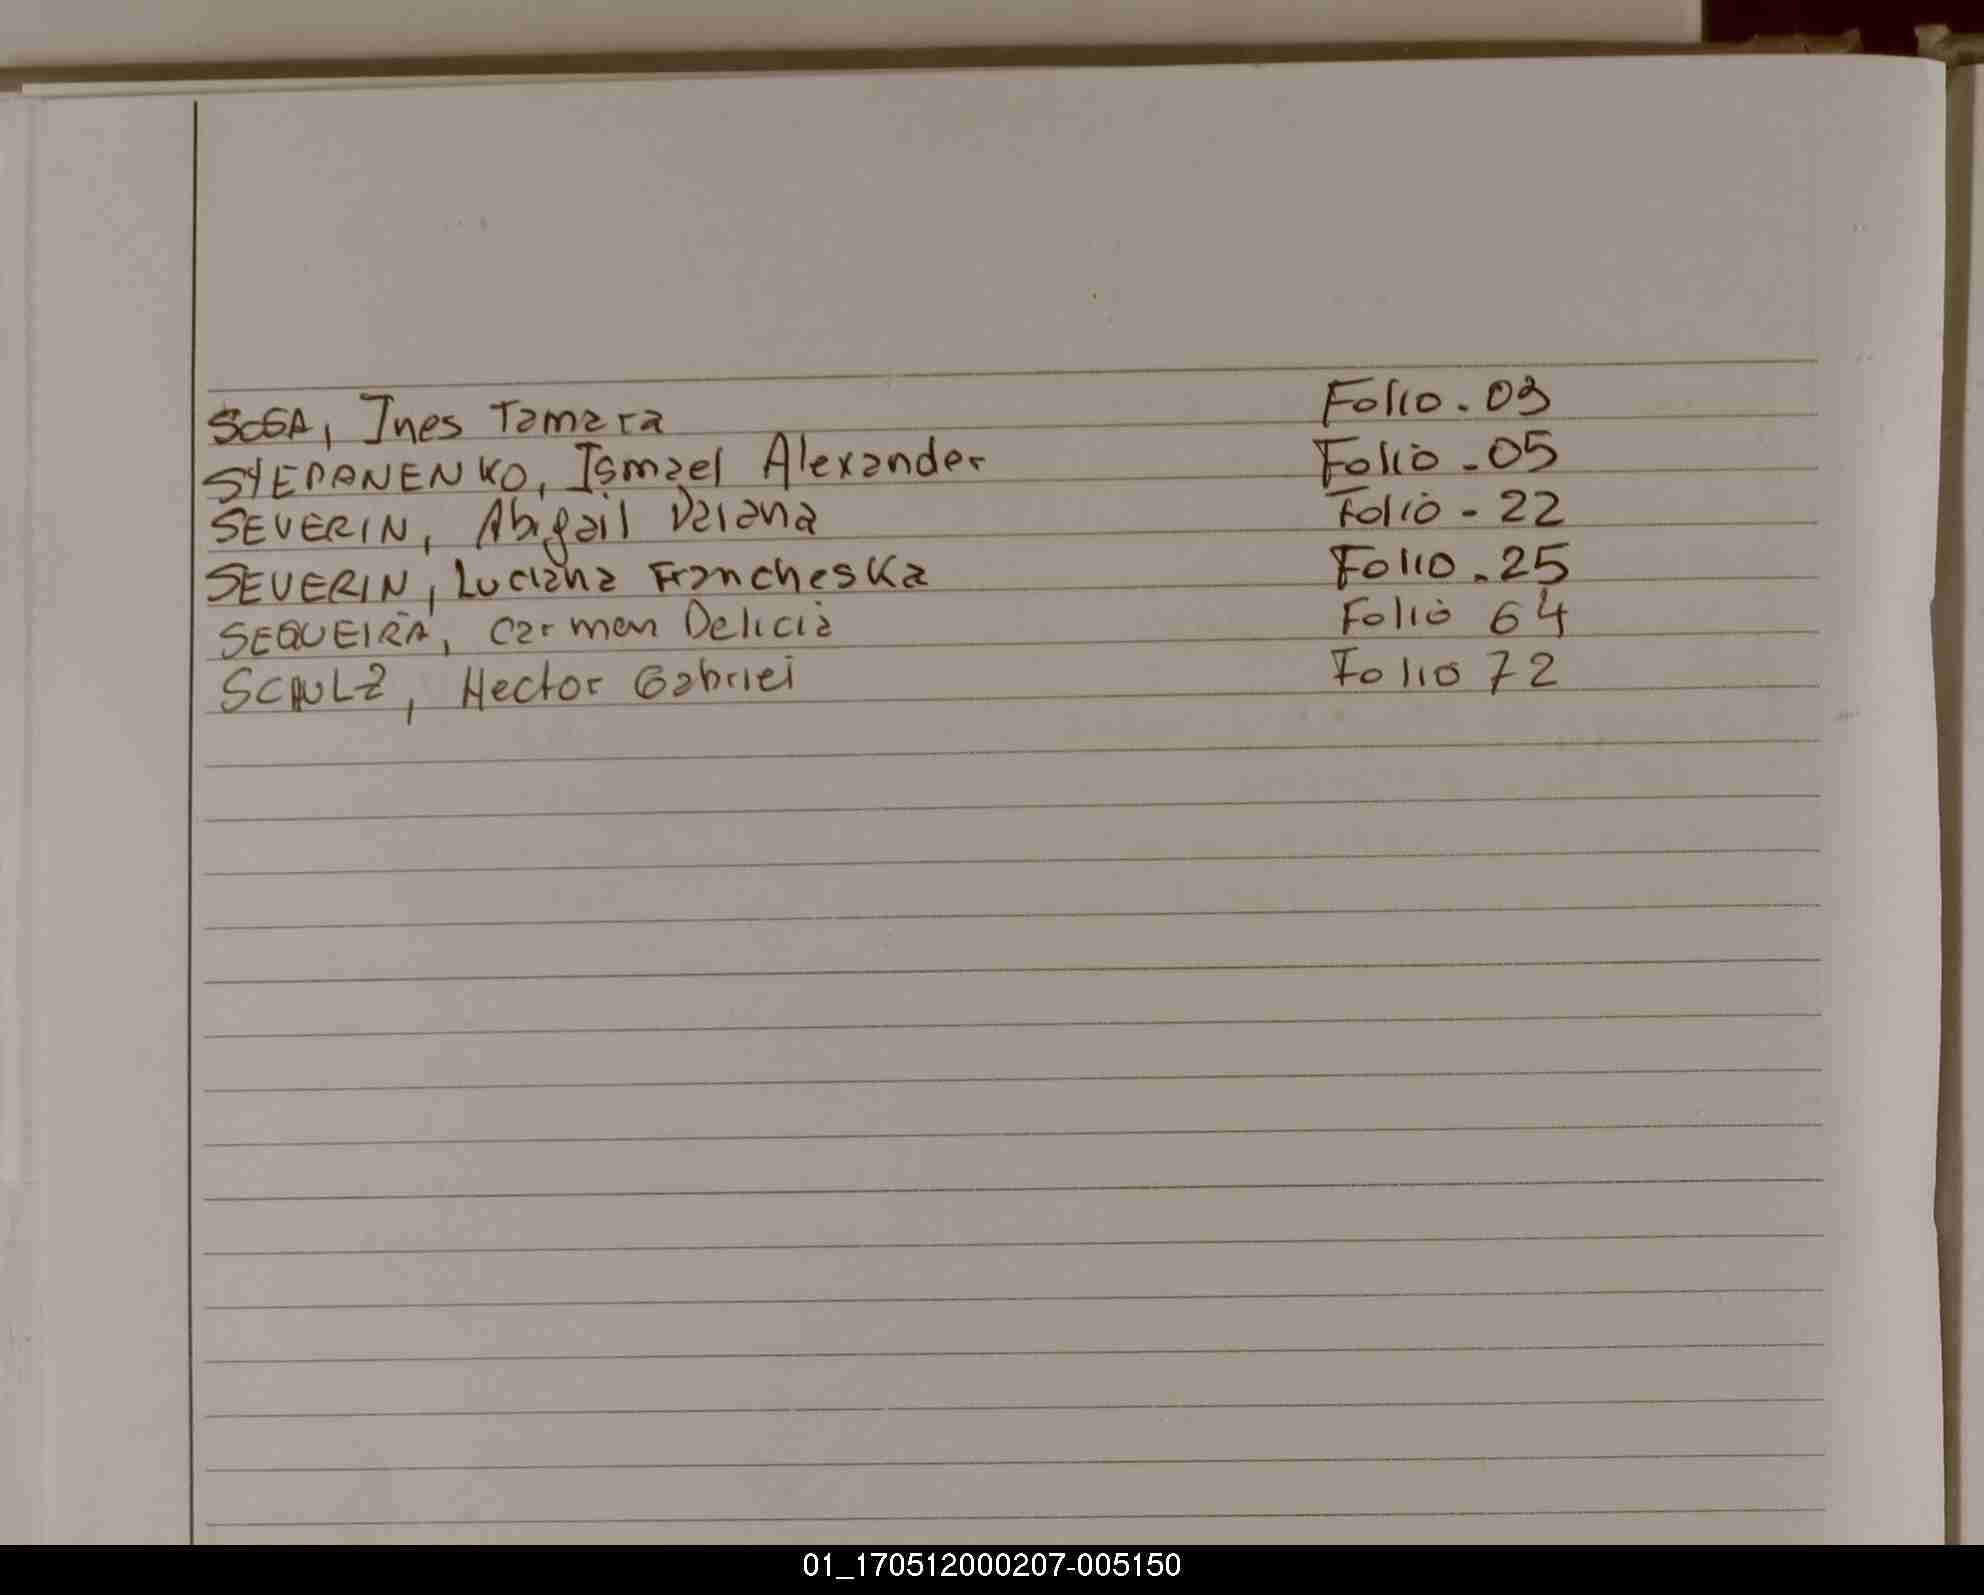 SOSA, Ines Tamara Folio. 03
STEPANENKO, Ismael Alexander Folio - 05
SEVERIN, Abigail Daiana Folio - 22
SEVERIN, Luciana Francheska Folio. 25
SEQUEIRA, Carmen Delicia Folio 64
SCHULZ, Hector Gabriel Folio 72
01_170512000207-005150